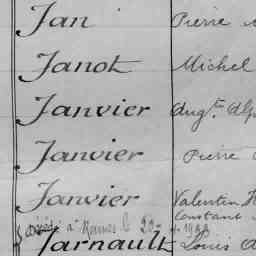 Jan Pierre
Janot Michel
Janvier Aug.te
Janvier Pierre
Janvier Valentin
Constant
décédé à Rennes le 20
Jarnault Louis